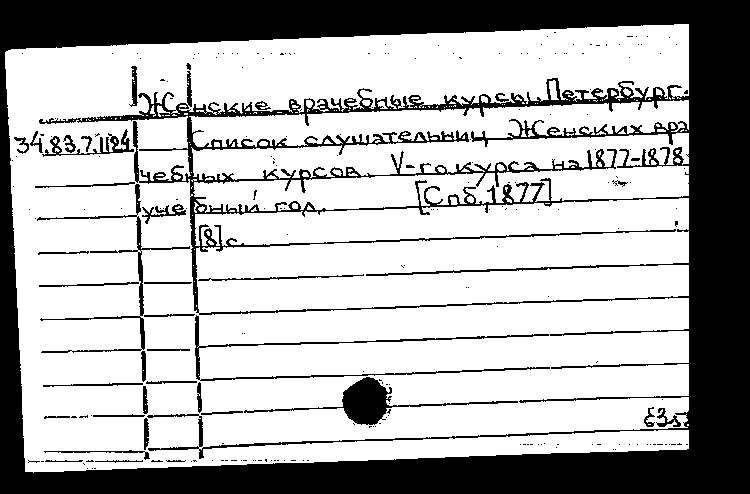 Женские врачебные курсы. Петербург.
34.83.7.1124 Список слушательниц Женских вра
чебных курсов. V-го курса на 1877-1878
учебный год. [Спб, 1877]
[8] с.